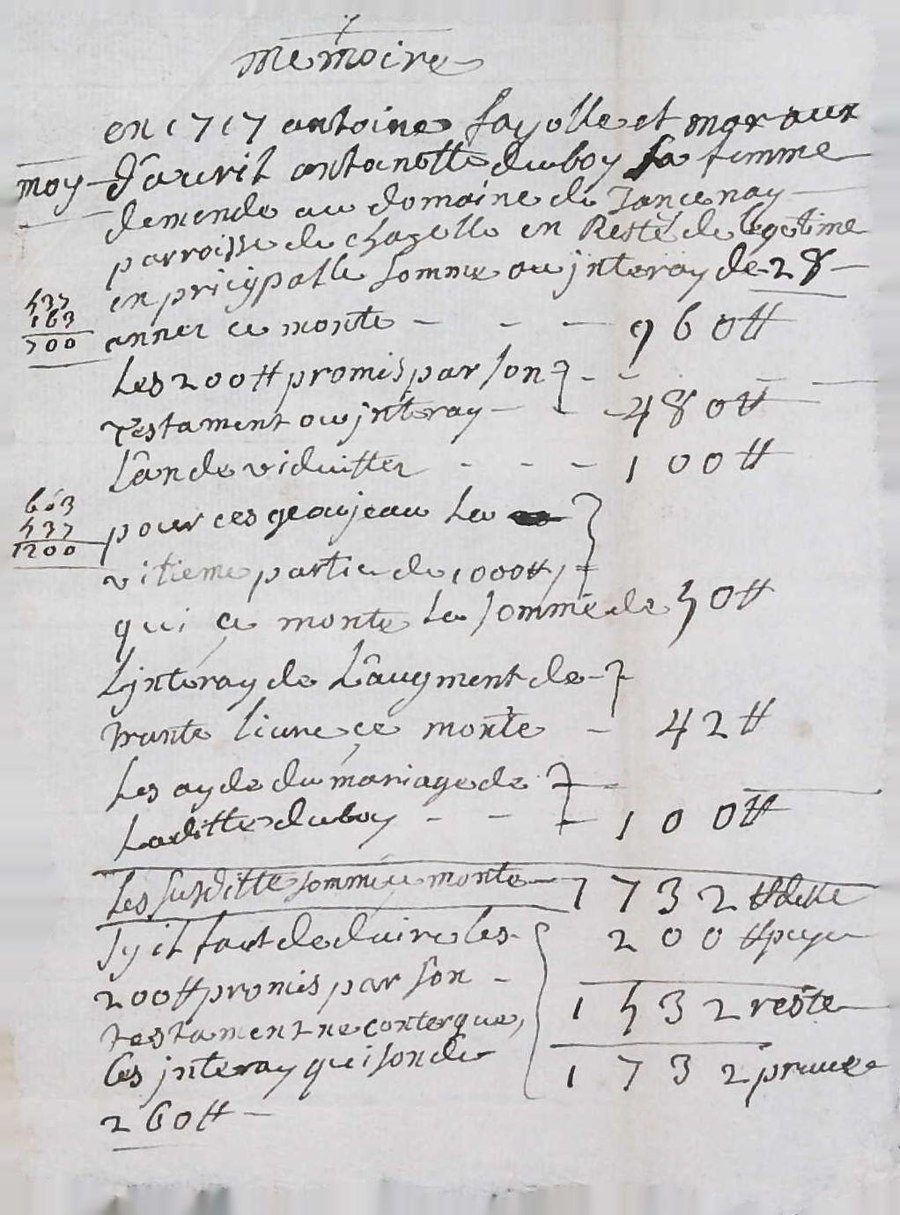 memoire
en 1717 antoine fayolle et mar aux
moy d'avril antoinette duboy sa femme
demende au domaine de Jancenay
parroisse de chazelle en Reste de legetime
en pricypalle somme ou jnteray de 28
537
163
700
annez ce monte - - - 960 ₶
Les 200 ₶ promis par son
testament ou jnteray - - 480 ₶
Lân de viduittez - - - 100 ₶
663
537
1200
pour ces geaujeau La
vitieme partie de 1000 ₶
qui ce monte La somme de 50 ₶
Ljnteray de Lâugment de
trante livre ce monte - 42 ₶
Les ayde du mariage de
Laditte duboy - - - 100 ₶
Les susditte somme ce monte - 1732 ₶ dette
sy il faut deduire les 200 ₶ paye
200 ₶ promis par son -
1532 reste
testament ne conter que,
Les jnteray qui son de
1732 preuve
260 ₶ -